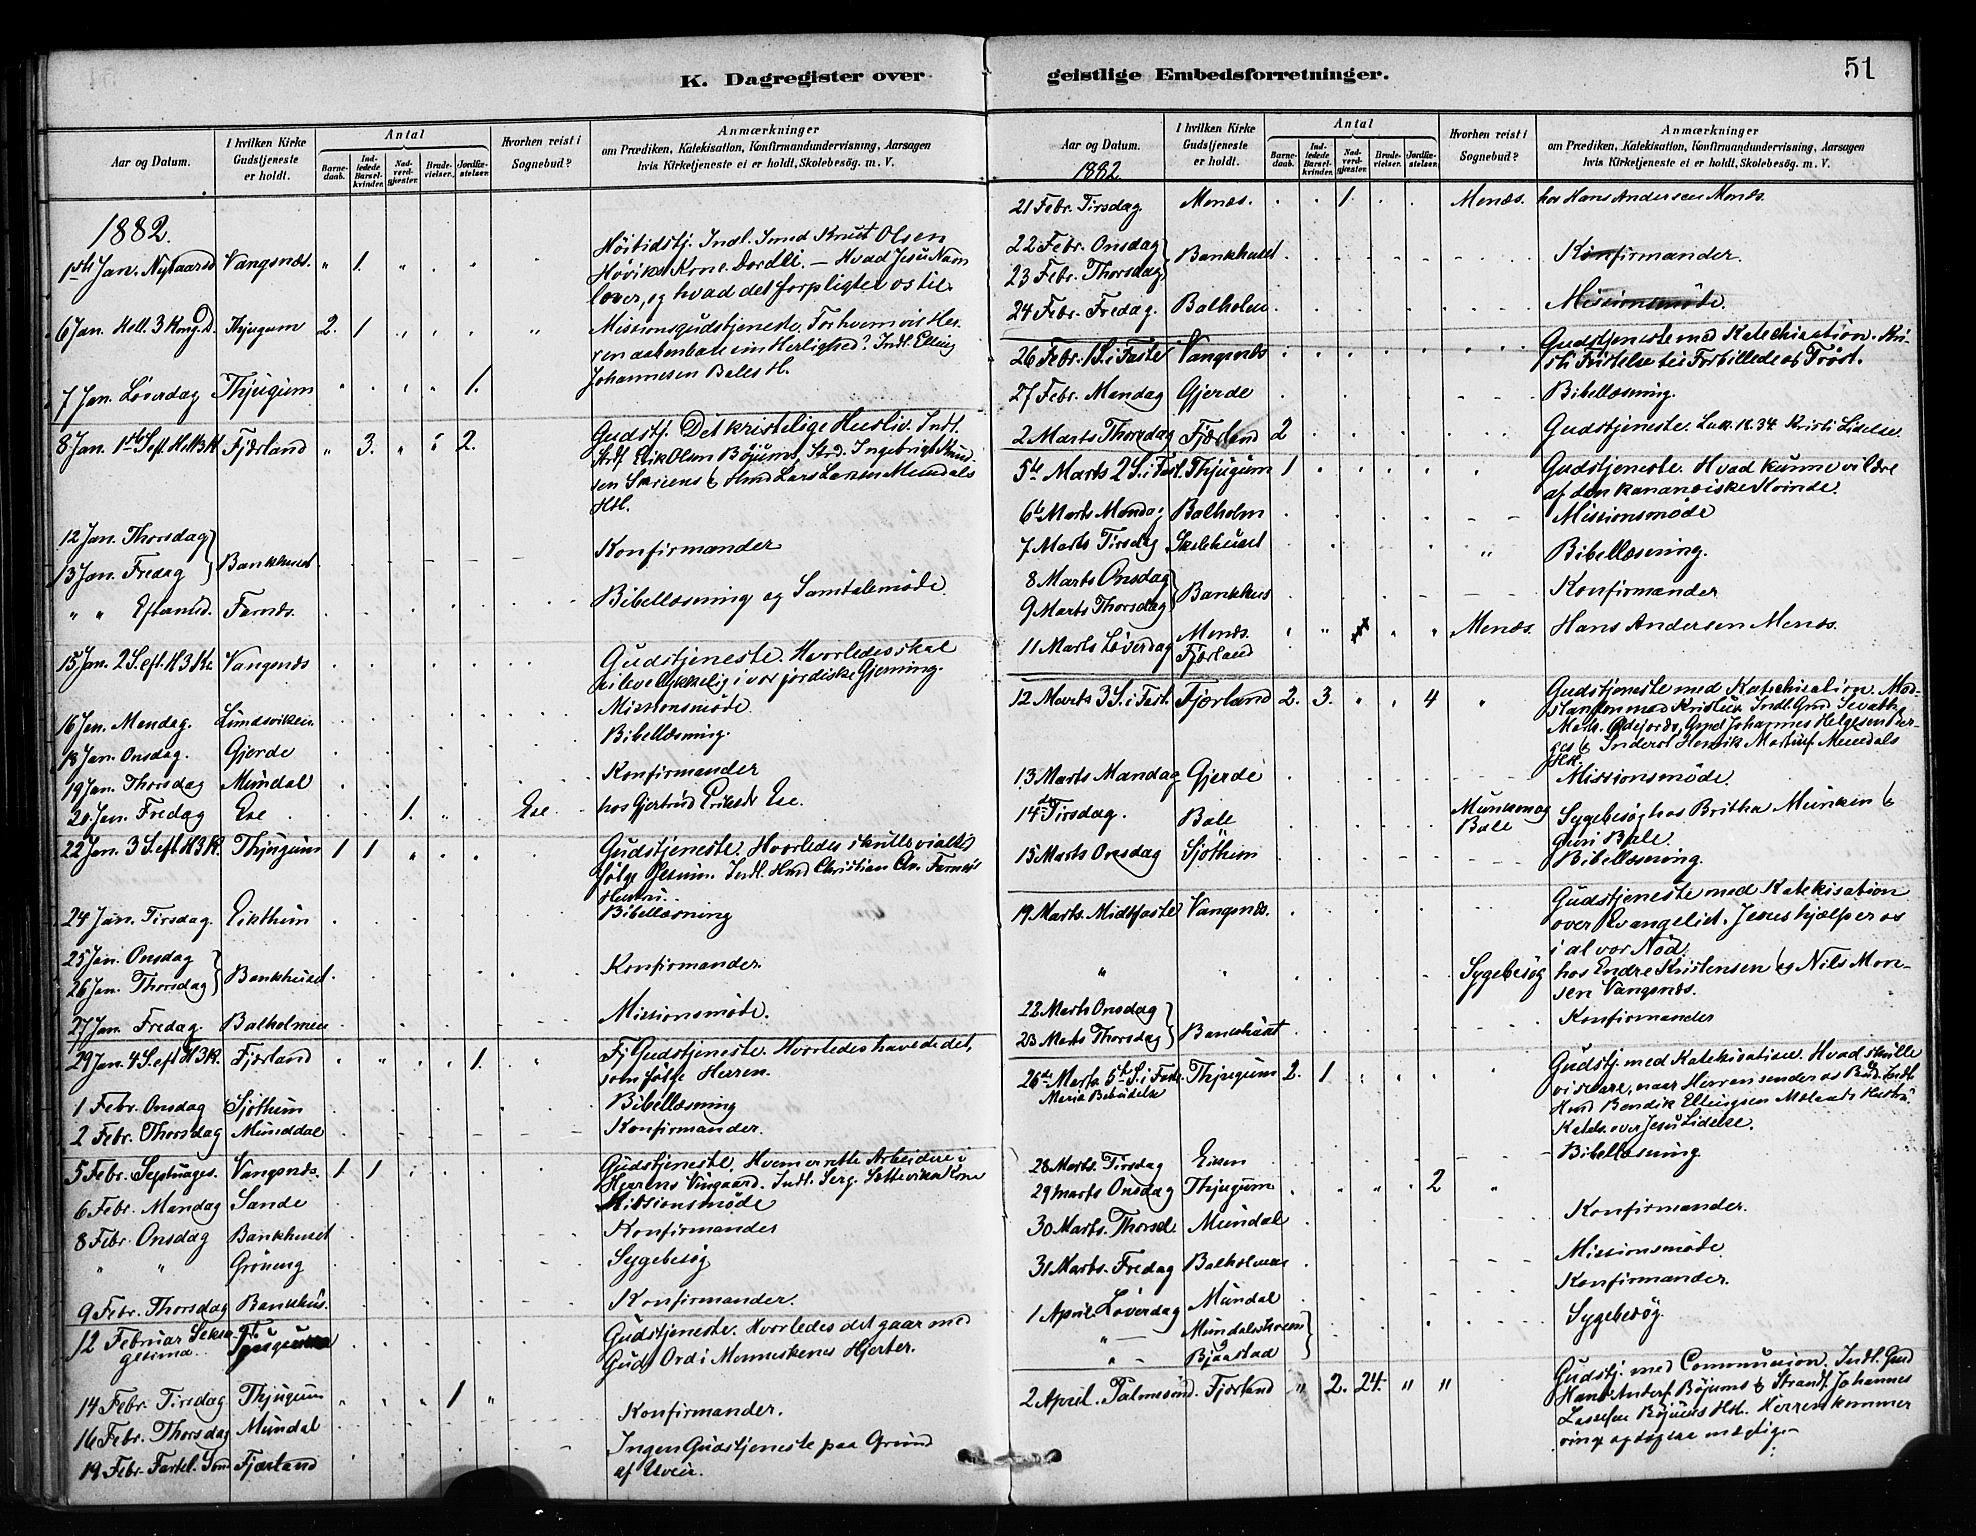 K. Dagregister over
Aar og Datum.
I hvilken Kirke Gudstjeneste er holdt.
Antal
Barnedaab.
Indledede Barselkvinder.
Nadverdgjester.
Brudevielser.
Jordfæstelser.
Hvorhen reist i Sognebud?
Anmærkninger
om Prædiken, Katekisation, Konfirmandundervisning, Aarsagen
hvis Kirketjeneste ei er holdt, Skolebesøg. m. V.
1882.
Høitidstj. Indl. Knut Olsen
1ste Jan. Nytaarsd Vangsnæs. " 1. " " " " Høviks Kone Dordei. – Hvad Jesu Navn
lover, og hvad det forpligter os til.
6 Jan. Hell. 3 Kong. D. Thjugum 2. 1 Missionsgudstjeneste. For hvem vil Her-
ren aabenbare sin Herlighed? Indl. Elling
Johannesen Bales H.
7 Jan. Løverdag Thjugum 1.
8 Jan. 1ste S. eft. Hell 3 K. Fjærland " 3. " " 2. Gudstj. Det kristelige Husliv. Indl.
Erik Olsen Bøjums, Strd. Ingebrigt
Lars Larsen Mundals
Hst.
12 Jan. Thorsdag
13 Jan. Fredag Bankhuset Konfirmander
" " Eftermd. Farnæs. Bibellæsning og Samtalemøde.
15 Jan. 2 S. eft. H 3 K. Vangsnæs Gudstjeneste. Hvorledes skal
vi leve lykkelig i vor jordiske Gjerning.
16 Jan. Mandag. Lindsviken Missionsmøde.
18 Jan. Onsdag. Gjerde Bibellæsning.
19 Jan. Thorsdag Mundal Konfirmander
20 Jan. Fredag Ese 1. Ese hos Gjertrud Eriksdr Ese.
22 Jan. 3 S. eft. H 3 K. Thjugum 1 1 Gudstjeneste. Hvorledes skulle vi altid
følge Jesum. Indl. Christian An. Farnæs
Hustru.
24 Jan. Tirsdag. Eikthun Bibellæsning
25 Jan. Onsdag
26 Jan. Thorsdag Bankhuset. Konfirmander.
27 Jan. Fredag. Balholmen Missionsmøde.
29 Jan. 4 S. eft H 3 K. Fjærland 1. Gudstjeneste. Hvorledes have de det,
som følge Herren.
1 Febr. Onsdag Sjøthun Bibellæsning
2 Febr. Thorsdag Munddal Konfirmander.
5 Febr. Septuages. Vangsnæs. 1 1 Gudstjeneste. Hvem er rette Arbeidere i
Herrens Vingaard. Indl. Serg. Kone
6 Febr. Mandag Sande Missionsmøde
8 Febr. Onsdag Bankhuset Konfirmander
" " Grøning Sygebesøg
9 Febr. Thorsdag Bankhus. Konfirmander.
12 Februar Seksa- Gudstjeneste. Hvorledes det gaar med
gesima. Thjugum Guds Ord i Menneskenes Hjerter.
14 Febr. Tirsdag Thjugum 1
16 Febr. Thorsdag Mundal Konfirmander.
19 Febr. Fastel. Sønd Fjærland Ingen Gudstjeneste paa Grund
af Uveir.
geistlige Embedsforretninger.
51
Aar og Datum.
I hvilken Kirke Gudstjeneste er holdt.
Antal
Barnedaab.
Indledede Barselkvinder.
Nadverdgjester.
Brudevielser.
Jordfæstelser.
Hvorhen reist i Sognebud?
Anmærkninger
om Prædiken, Katekisation, Konfirmandundervisning, Aarsagen
hvis Kirketjeneste ei er holdt, Skolebesøg. m. V.
1882
21 Febr. Tirsdag Menæs. 1. Menæs. hos Hans Andersen Menæs.
22 Febr. Onsdag
23 Febr. Thorsdag Bankhuset Konfirmander.
24 Febr. Fredag. Balholm Missionsmøde.
26 Febr. 1 S. i Faste Vangsnæs Gudstjeneste med Katechisation. Kri-
sti Fristelse til Forbillede og Trøst.
27 Febr. Mandag Gjerde Bibellæsning.
2 Marts Thorsdag Fjærland 2 Gudstjeneste. Luk. 18.34 Kristi Lidelse.
5te Marts 2 S. i Fast. Thjugum 1 Gudstjeneste. Hvad kunne vi lære
af den kananæiske Kvinde.
6te Marts Mandag Balholm Missionsmøde
7 Marts Tirsdag Skolehuset " Bibellæsning.
8 Marts Onsdag
9 Marts Thorsdag Bankhus Konfirmander
11 Marts Løverdag Menæs. Fjærland Menæs. Hans Andersen Menæs.
12 Marts 3 S. i Fast. Fjærland 2. 3. " " 4 " Gudstjeneste med Katechisation. Mod-
standen mod Kristus. Indl. Gmd. Sevath
Johannes Helgesen
Inderst Henrik Mundals
Hst.
13 Marts Mandag Gjerde Missionsmøde.
14de Tirsdag. Bale Munken og Bale Sygebesøg hos Britha Munken &
Guri Bale.
15 Marts Onsdag Sjøthun Bibellæsning.
19 Marts. Midtfaste Vangsnæs. Gudstjeneste med Katekisation
over Evangeliet. Jesus hjælper os
i al vor Nød.
" " Sygebesøg hos Endre Kristensen og Nils Mon-
sen Vangsnæs.
22 Marts Onsdag
23 Marts Thorsdag Bankhuset Konfirmander
26de Marts 5te S. i Faste. Thjugum 2. 1 Gudstj. med Katekisation. Hvad skulle
Mariæ Bebudelse vi svare, naar Herren sender os Bud. Indl.
Bendik Ellingsen Hustru.
Kateks. over Jesu Lidelse.
28 Marts. Tirsdag Eisen Bibellæsning
29 Marts Onsdag Thjugum 2 "
30 Marts. Thorsd. Mundal Konfirmander.
31 Marts. Fredag Balholmen Missionsmøde.
1 April Løverdag Mundal Konfirmander.
" — Mundalsstrøm
" - Bjaastad Sygebesøg.
2 April. Palmesønd. Fjærland " 2. 24. " " Gudstj. med Communion. Indl. Gmd
Hans Anders. Bøjums & Strands. Johannes
Lassesen Bøjums Hst. Herren kommer
ringe og dog mægtig.–